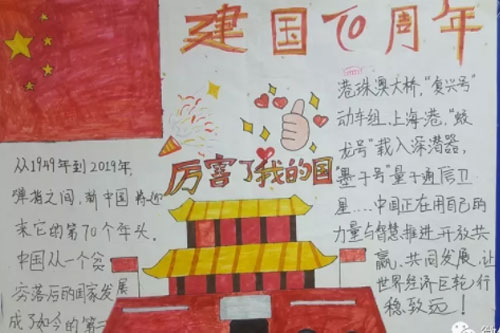 建国70周年
港珠澳大桥，“复兴号”
动车组，上海港，“蛟
龙号”载入深潜器，
“墨子号”量子通信卫
星……中国正在用自己的
力量与智慧推进开放共
赢、共同发展，让
世界经济巨轮行
稳致远！
厉害了我的国
从1949年到2019年，
弹指之间，新中国将迎
来它的第70个年头。
中国从一个贫
穷落后的国家发展
成了如今的第二